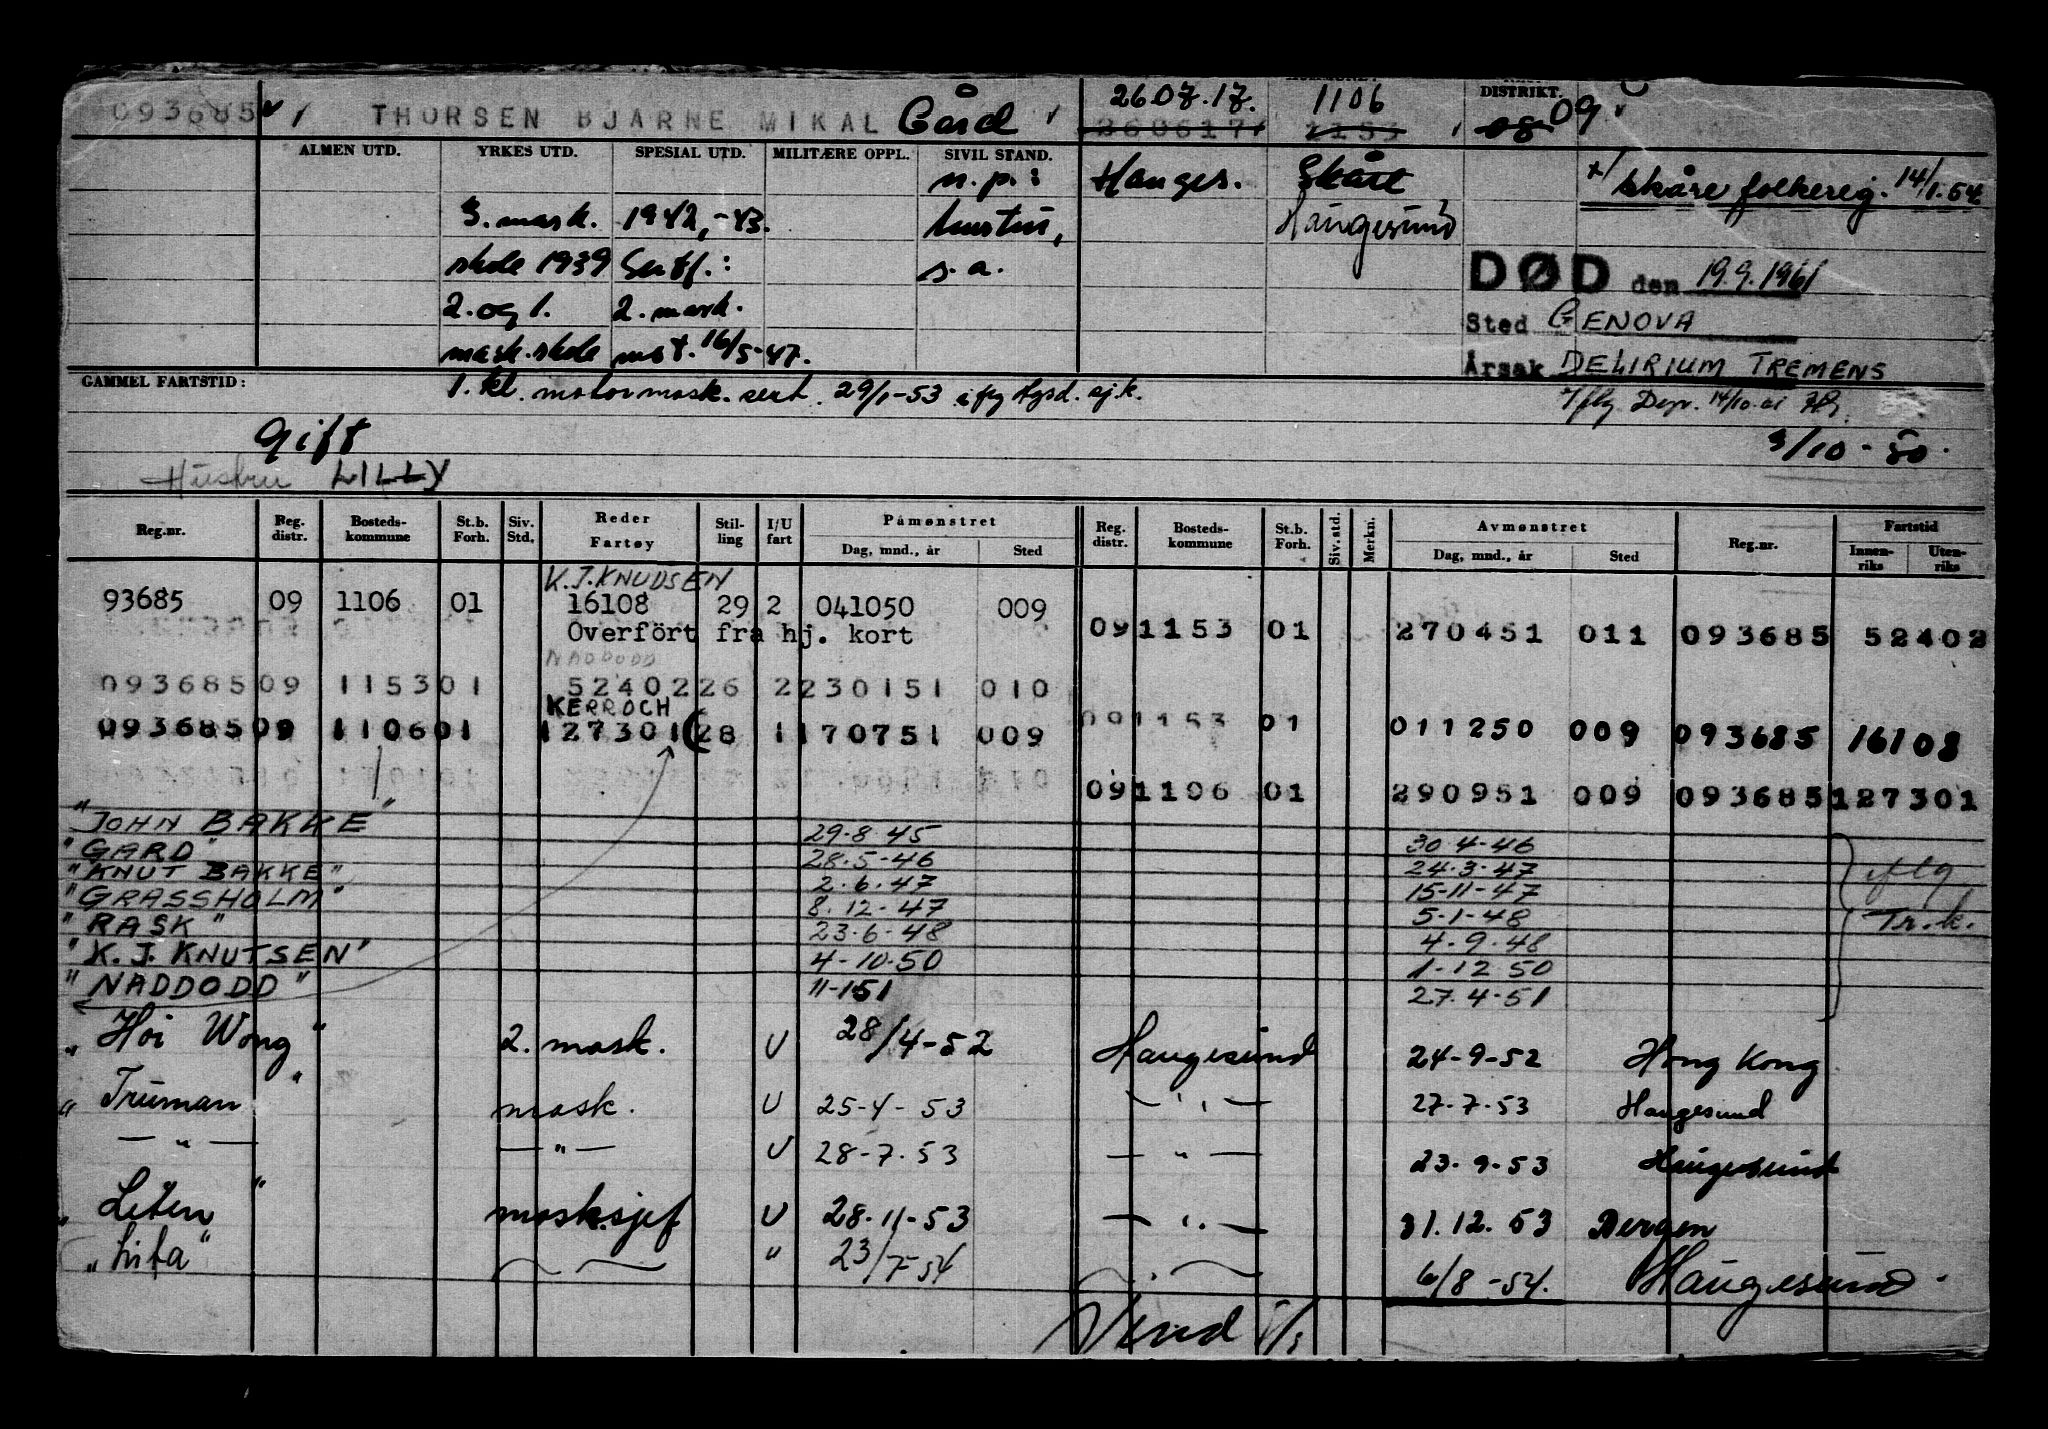 093685 THORSEN BJARNE MIKAL Gård 260717. 1106 DISTRIKT. 09
260617 1153 08
ALMEN UTD. YRKES UTD. SPESIAL UTD. MILITÆRE OPPL. SIVIL STAND.
n.p.: Hauges. Skåre +/ Skåre folkereg. 14/1.54
3. mask. 1942,-43. hustru, Haugesund
skole 1939 Sertf.: s.a. DØD den 19.9.1961
2. og 1. 2. mask. Sted GENOVA
mask.skole mot. 16/5-47. Årsak DELIRIUM TREMENS
GAMMEL FARTSTID: 1. kl. motormask. sert. 29/1-53 ifg Hgsd. sj.k.
Gift 3/10-50.
Hustru LILLY
Reg.nr. Reg. distr. Bosteds-kommune St.b. Forh. Siv. Std. Reder Fartøy Stil-ling I/U fart Påmønstret Dag, mnd., år Sted Reg. distr. Bosteds-kommune St.b. Forh. Siv. std. Merkn. Avmønstret Dag, mnd., år Sted Reg.nr. Fartstid Innen-riks Uten-riks
K.J.KNUDSEN
93685 09 1106 01 16108 29 2 041050 009
Overfört fra hj. kort 09 1153 01 270451 011 093685 52402
NADDODD
093685 09 1153 01 52402 26 2 230151 010
KERROCH
093685 09 1106 01 127301 28 1 170751 009 09 1153 01 011250 009 093685 16108
09 1106 01 290951 009 093685 127301
"JOHN BAKKE" 29.8 45 30 4-46
"GARD" 28.5-46 24.3.47
"KNUT BAKKE" 2.6.47 15-11-47 iflg
"GRASSHOLM" 8.12-47 5.1-48
"RASK" 23.6.48 4.9.48 Tr.k.
"K. J. KNUTSEN" 4-10.50 1-12 50
"NADDODD" 11-151 27.4-51
"Hoi Wong" 2. mask. U 28/4-52 Haugesund 24-9-52 Hong Kong
"Truman" mask. U 25-4-53 — " — 27.7.53 Haugesund
— " — — " — U 28-7.53 — " — 23.9.53 Haugesund
"Leten" masksjef U 28.11-53 — " — 31.12.53 Bergen
"Lita" " 23/7-54 6/8-54. Haugesund.
Vend